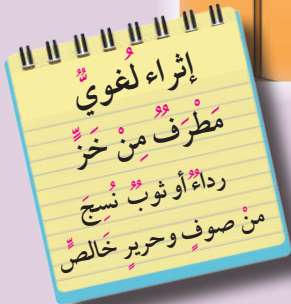 إثراء لُغويٌّ
مَطْرَفٌ مِنْ خَزٍّ
رداءٌ أو ثوبٌ نُسِجَ
منْ صوفٍ وحريرٍ خَالصٍّ